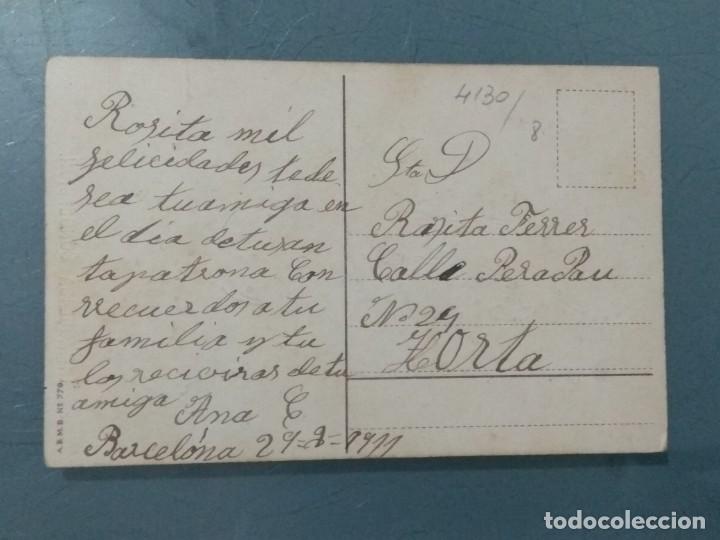 Rosita mil
felicidades tede
sea tuamiga en
el dia detusan
tapatrona Con
rrecuerdos a tu
familia y tu
los reciviras de tu
amiga
Ana C
Barcelóna 29=8=1911
4130/8
Sta D
Rosita Ferrer
Calle PeraPau
No 29
Horta
A.B.M.B. Nº 779
todocoleccion
todocoleccion.net